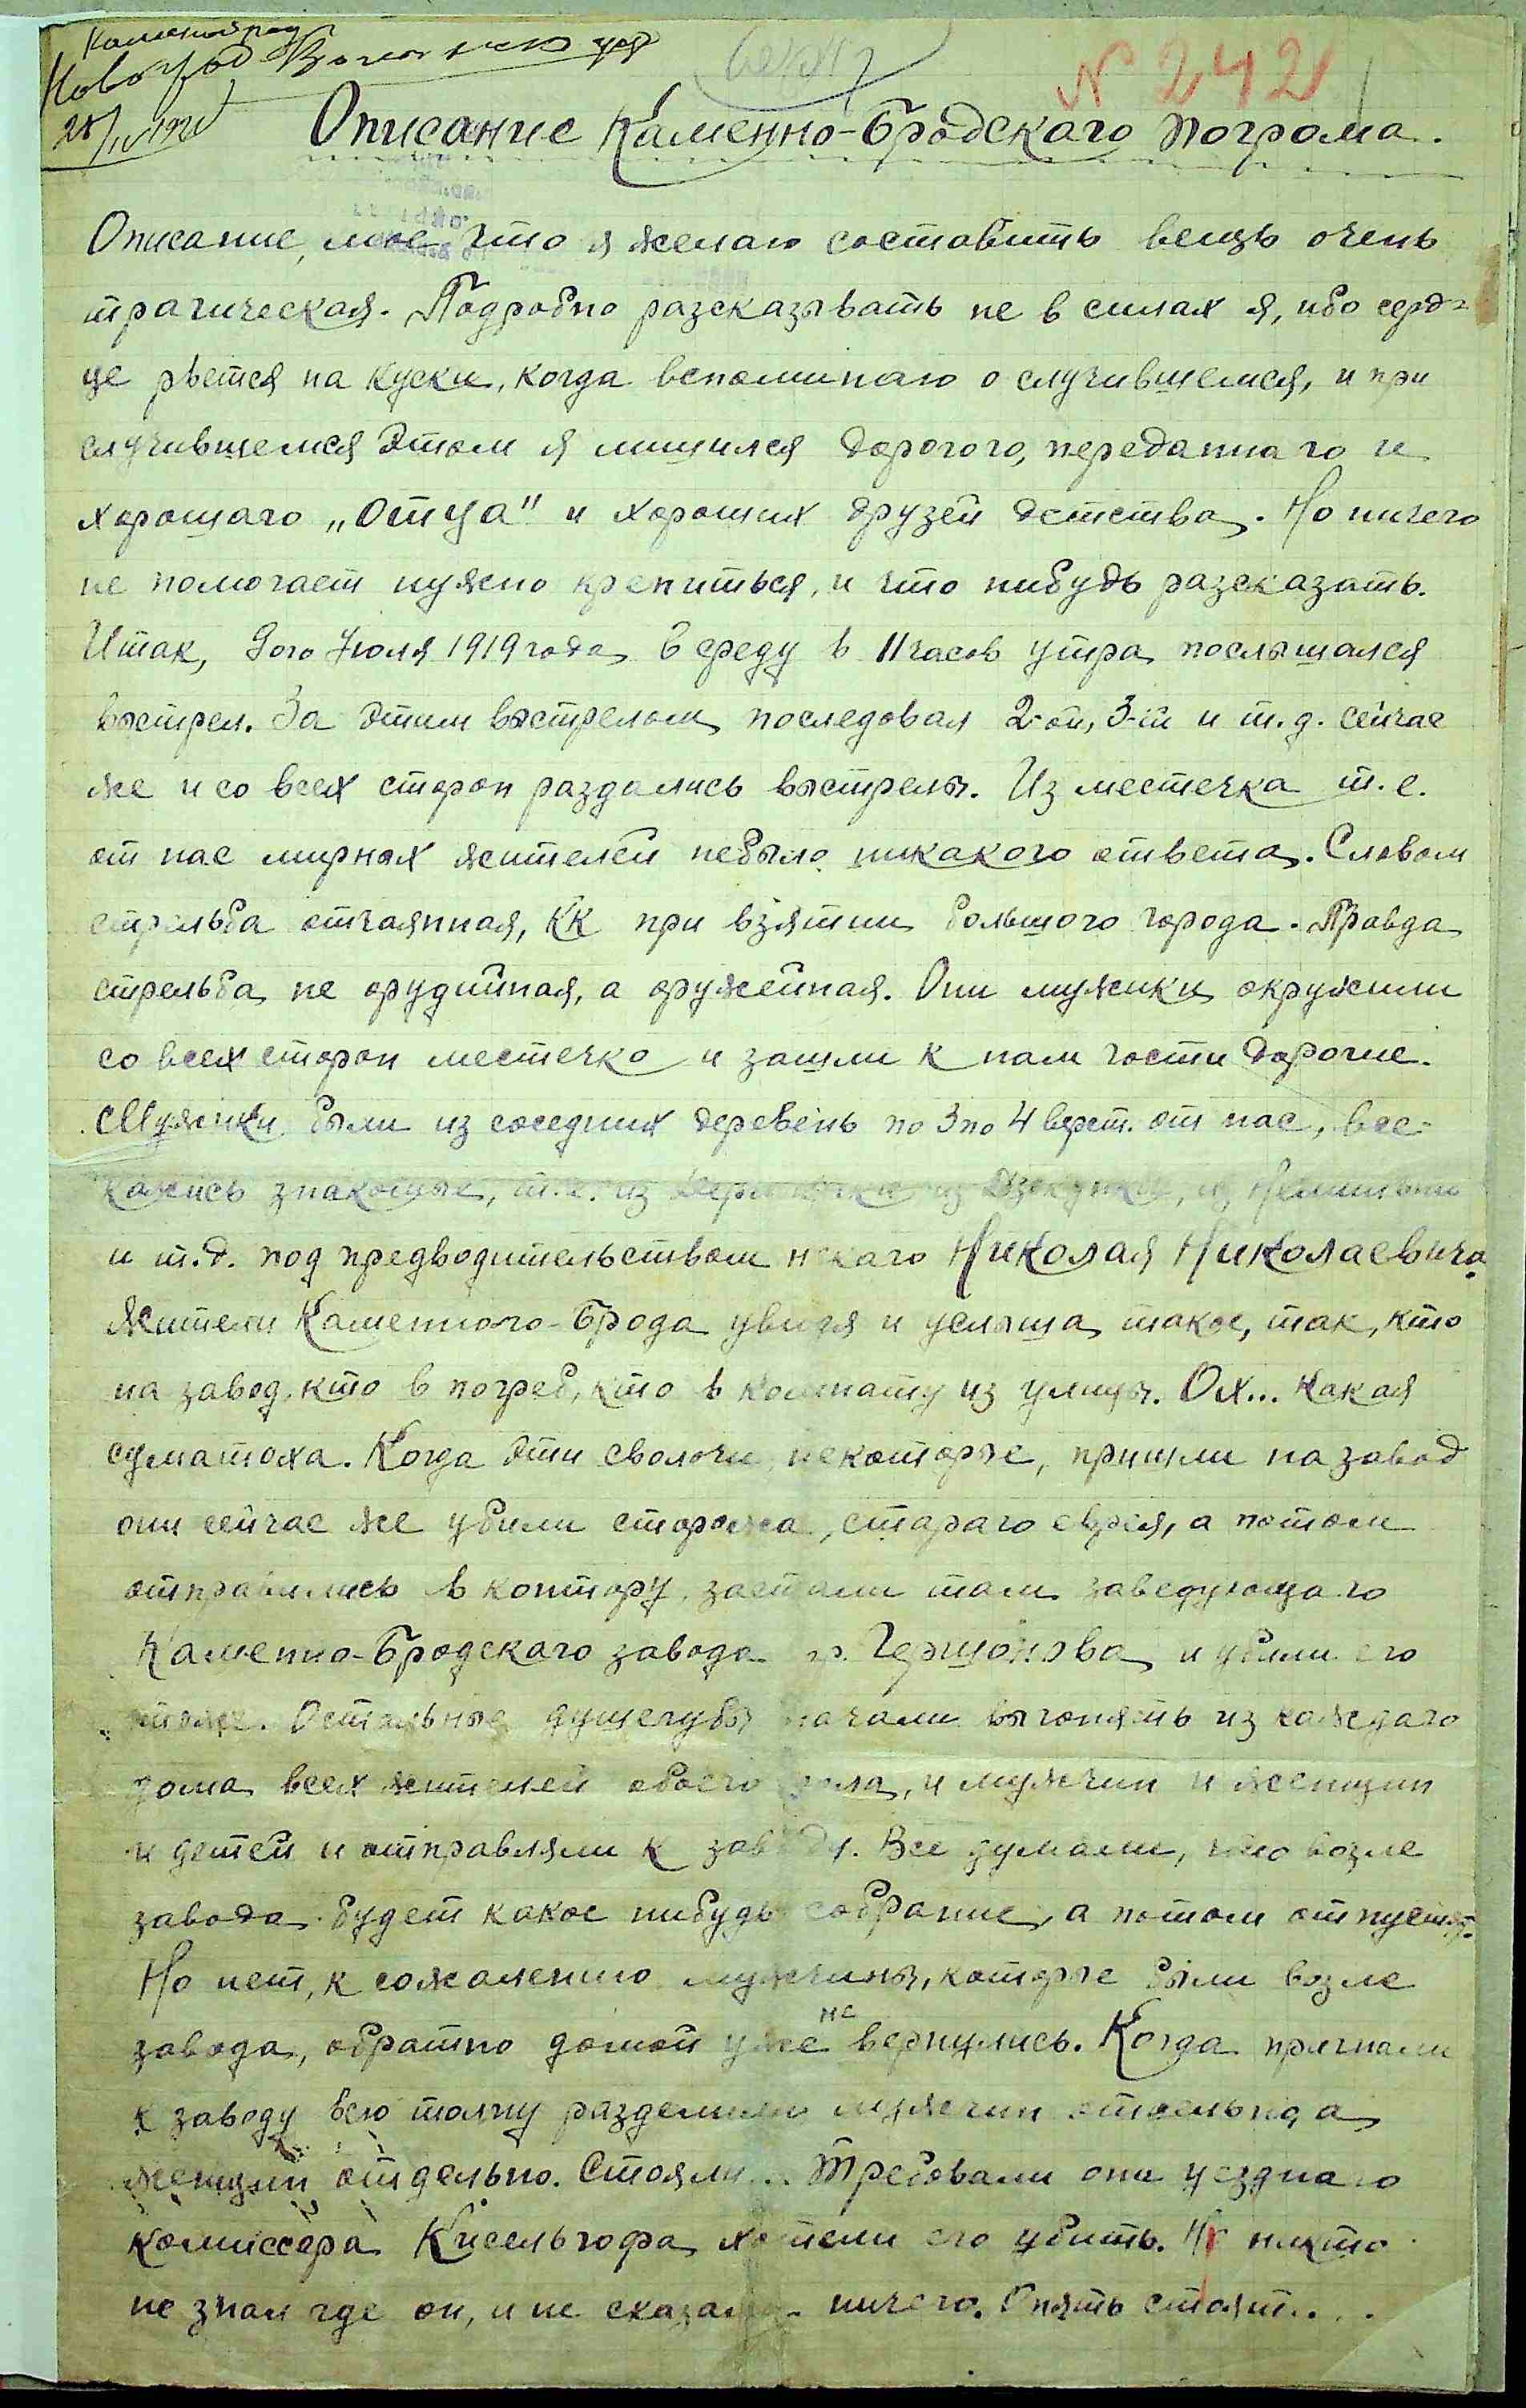 Новоград Волынско уез
№ 242
Описание Каменно-Бродскаго погрома.
Описание, мое что я желаю составить вещь очень
трагическая. Подробно разсказывать не в силах я, ибо серд-
це рвется на куски, когда вспоминаю о случившемся, и при
случившемся этом я лишился дорогого, преданнаго и
хорошаго „отца" и хороших друзей детства. Но ничего
не помогает нужно крепиться, и что нибудь разсказать.
Итак, 9ого Июля 1919 года в среду в 11 часов утра послышался
выстрел. За этим выстрелом последовал 2-ой, 3-ий и т.д. сейчас
же и со всех сторон раздались выстрелы. Из местечка т.е.
от нас мирных жителей небыло никакого ответа. Словом
стрельба отчаянная, кк при взятии большого города. Правда
стрельба не орудийная, а оружейная. Они мужики окружили
со всех сторон местечко и зашли к нам гости дорогие.
Мужики были из соседних деревень по 3 по 4 верст. от нас, все-
кажись знакомые, т.е. из из
и т.д. под предводительством некаго Николая Николаевича
Жители Каменного-Брода увидя и услыша такое, так, кто
на завод, кто в погреб, кто в комнату из улицы. Ох... какая
суматоха. Когда эти сволочи некоторые, пришли на завод
они сейчас же убили сторожа, стараго еврея, а потом
отправились в контору, застали там заведующаго
Каменно-Бродскаго завода гр. Гершонова и убили его
тоже. Остальные душегубы начали выгонять из каждаго
дома всех жителей обоего пола, и мужчин и женщин
и детей и отправляли к заводу. Все думали, что возле
завода будет какое нибудь собрание, а потом отпустят.
Но нет, к сожалению мужчины, которые были возле
завода, обратно домой уже не вернулись. Когда пригнали
к заводу всю толпу разделили мужчин отдельно, а
женщин отдельно. Стояли... Требовали они уезднаго
комиссера Кисельгофа хотели его убить. Но никто
не знал где он, и не сказали ничего. Опять стоят....